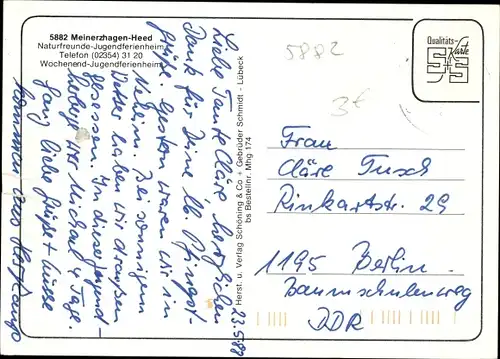 5882 Meinerzhagen-Heed
Naturfreunde-Jugendferienheim
Telefon (02354) 31 20
Wochenend-Jugendferienheim
Liebe Tante Cläre, herzlichen
Dank für Deine lb. Pfingst-
grüße. Gestern waren wir in
Neheim. Bei sonnigem
Wetter haben wir draußen
gesessen. In dieser Jugend-
herberge war Michael 4 Tage.
Ganz liebe Grüße + Küsse
23.5.88
Herst. u. Verlag Schöning & Co + Gebrüder Schmidt - Lübeck
bs Bestellnr. Mhg 174
Qualitäts-
Karte
5882
3€
Frau
Cläre Tusch
Rinkartstr. 29
1195 Berlin
Baumschulenweg
DDR